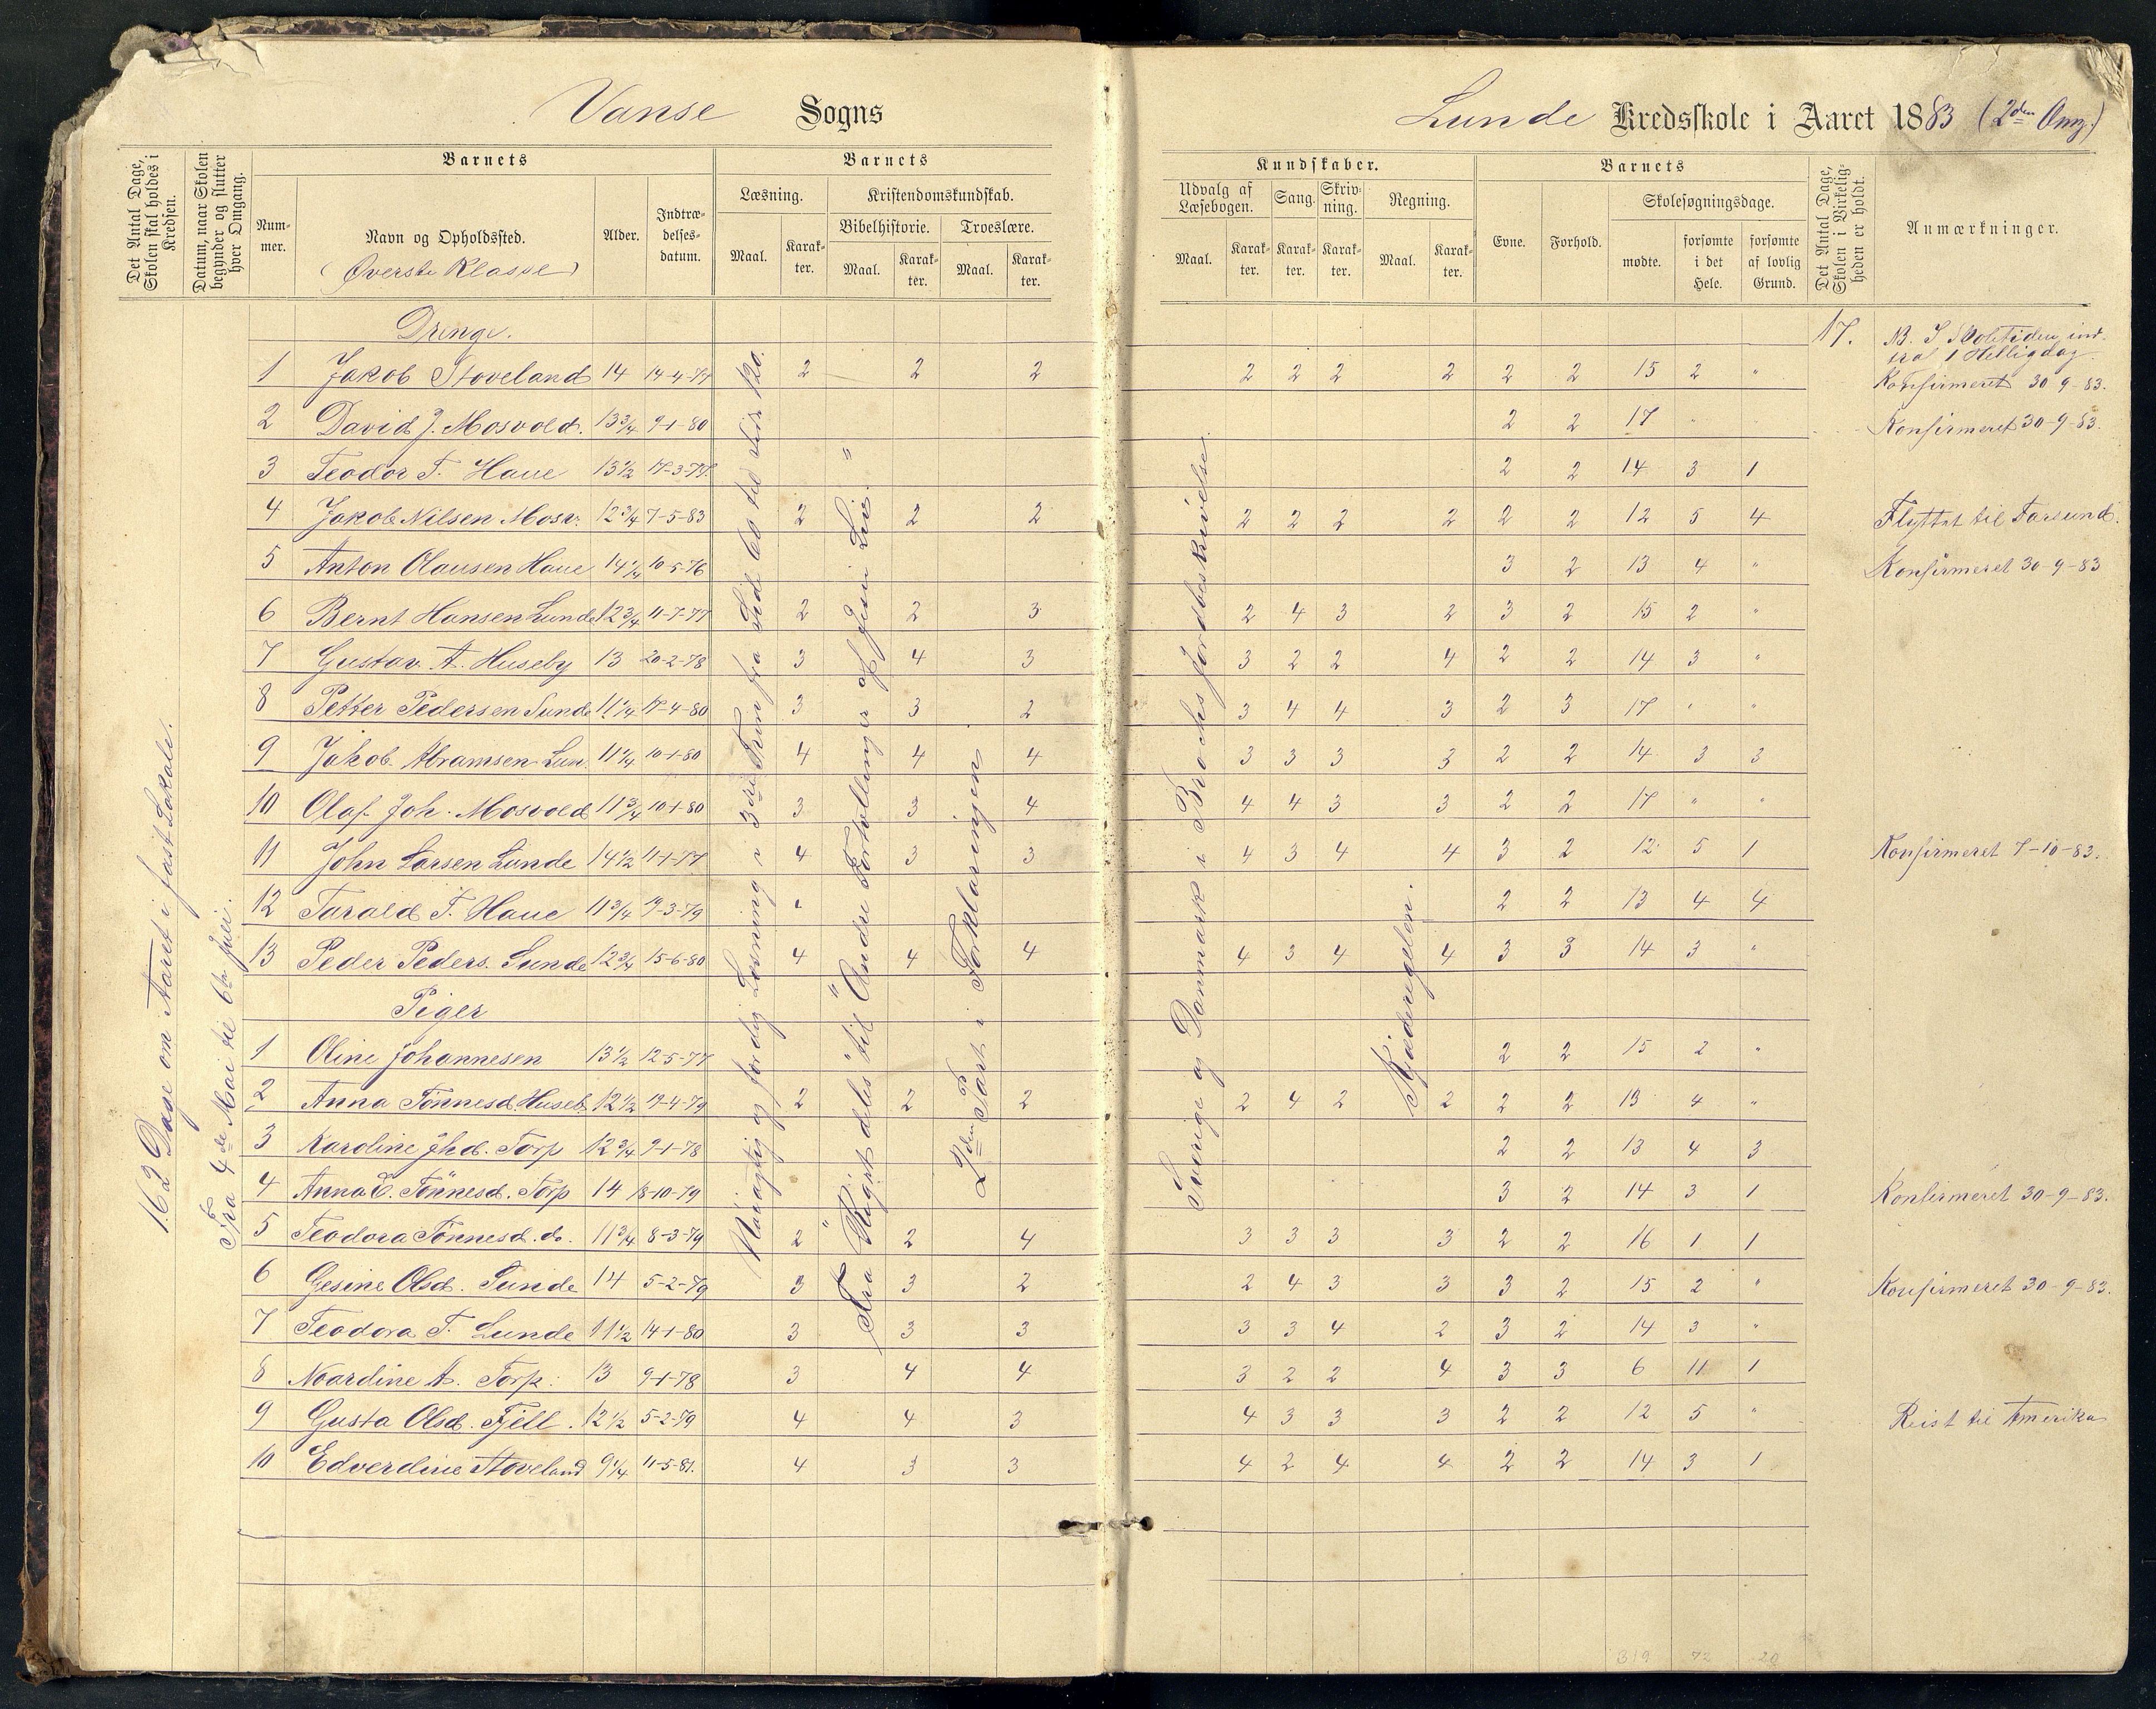 Vanse Sogns
Lunde Kredsskole i Aaret 1883 (2den Omg.)
Det Antal Dage, Skolen skal holdes i Kredsen.
Datum, naar Skolen begynder og slutter hver Omgang.
Barnets
Nummer.
Navn og Opholdssted.
(Øverste Klasse)
Alder.
Indtrædelsesdatum.
Barnets
Læsning.
Maal.
Karakter.
Kristendomskundskab.
Bibelhistorie.
Maal.
Karakter.
Troeslære.
Maal.
Karakter.
Kundskaber.
Udvalg af Læsebogen.
Maal.
Karakter.
Sang.
Karakter.
Skrivning.
Karakter.
Regning.
Maal.
Karakter.
Barnets
Evne.
Forhold.
Skolesøgningsdage.
mødte.
forsømte i det Hele.
forsømte af lovlig Grund.
Det Antal Dage, Skolen i Virkeligheden er holdt.
Anmærkninger.
162 Dage om Aaret i fast Lokale.
Fra 4de Mai til 6te Juli.
Nøiagtig og færdig Læsning i 3die Trin fra Side 60 til Side 120.
Fra "Riget deles" til "Andre Fortællinger af Jesu Liv."
2den Part i Forklaringen
Sverige og Danmark i Brochs Jordbeskrivelse
Kjæderegelen.
17.
Drenge.
NB. I Skoletiden
1 Helligdag.
1 Jakob Stoveland 14 14-4-77 2 2 2 2 2 2 2 2 2 15 2 " Konfirmeret 30-9-83.
2 David J. Mosvold. 13 3/4 9-1-80 2 2 17 " Konfirmeret 30-9-83.
3 Teodor T. Haue 13 1/2 17-3-77 2 2 14 3 1
4 Jakob Nilsen Mosv. 12 3/4 7-5-83 2 2 2 2 2 2 2 2 2 12 5 4 Flyttet til Farsund.
5 Anton Olausen Haue 14 1/4 10-5-76 3 2 13 4 " Konfirmeret 30-9-83
6 Bernt Hansen Lunde 12 3/4 11-7-77 2 2 3 2 4 3 2 3 2 15 2 "
7 Gustav A. Huseby 13 20-2-78 3 4 3 3 2 2 4 2 2 14 3 "
8 Petter Pedersen Sunde 11 1/4 17-4-80 3 3 2 3 4 4 3 2 3 17 " "
9 Jakob Abramsen Lun. 11 1/4 10-1-80 4 4 4 3 3 3 3 2 2 14 3 3
10 Olaf Joh. Mosvold 11 3/4 10-1-80 3 3 4 4 4 3 3 2 2 17 " "
11 John Larsen Lunde 14 1/2 11-1-77 4 3 3 4 3 4 4 3 2 12 5 1 Konfirmeret 7-10-83.
12 Tarald T. Haue 11 3/4 19-3-79 2 2 13 4 4
13 Peder Peders. Sunde 12 3/4 15-6-80 4 4 4 4 3 4 4 3 3 14 3 "
Piger
1 Oline Johannesen 13 1/2 12-5-77 2 2 15 2 "
2 Anna Tønnesd. Huseb. 12 1/2 19-4-79 2 2 2 2 4 2 2 2 2 13 4 "
3 Karoline Jhd. Torp 12 3/4 9-1-78 2 2 13 4 3
4 Anna E. Tönnesd. Torp 14 18-10-79 3 2 14 3 1 Konfirmeret 30-9-83.
5 Teodora Tønnesd. do. 11 3/4 8-3-79 2 2 4 3 3 3 3 2 2 16 1 1
6 Gesine Olsd. Sunde 14 5-2-79 3 3 2 2 4 3 3 3 2 15 2 " Konfirmeret 30-9-83.
7 Teodora T. Lunde 11 1/2 14-1-80 3 3 3 3 3 4 2 3 2 14 3 "
8 Noardine A. Torp. 13 9-1-78 3 4 4 3 2 2 4 3 3 6 11 1
9 Gusta Olsd. Fjell. 12 1/2 5-2-79 4 4 3 4 3 3 3 2 2 12 5 " Reist til Amerika
10 Edverdine Stoveland 9 1/4 11-5-81. 4 3 3 4 2 4 4 2 2 14 3 1
319 72 20